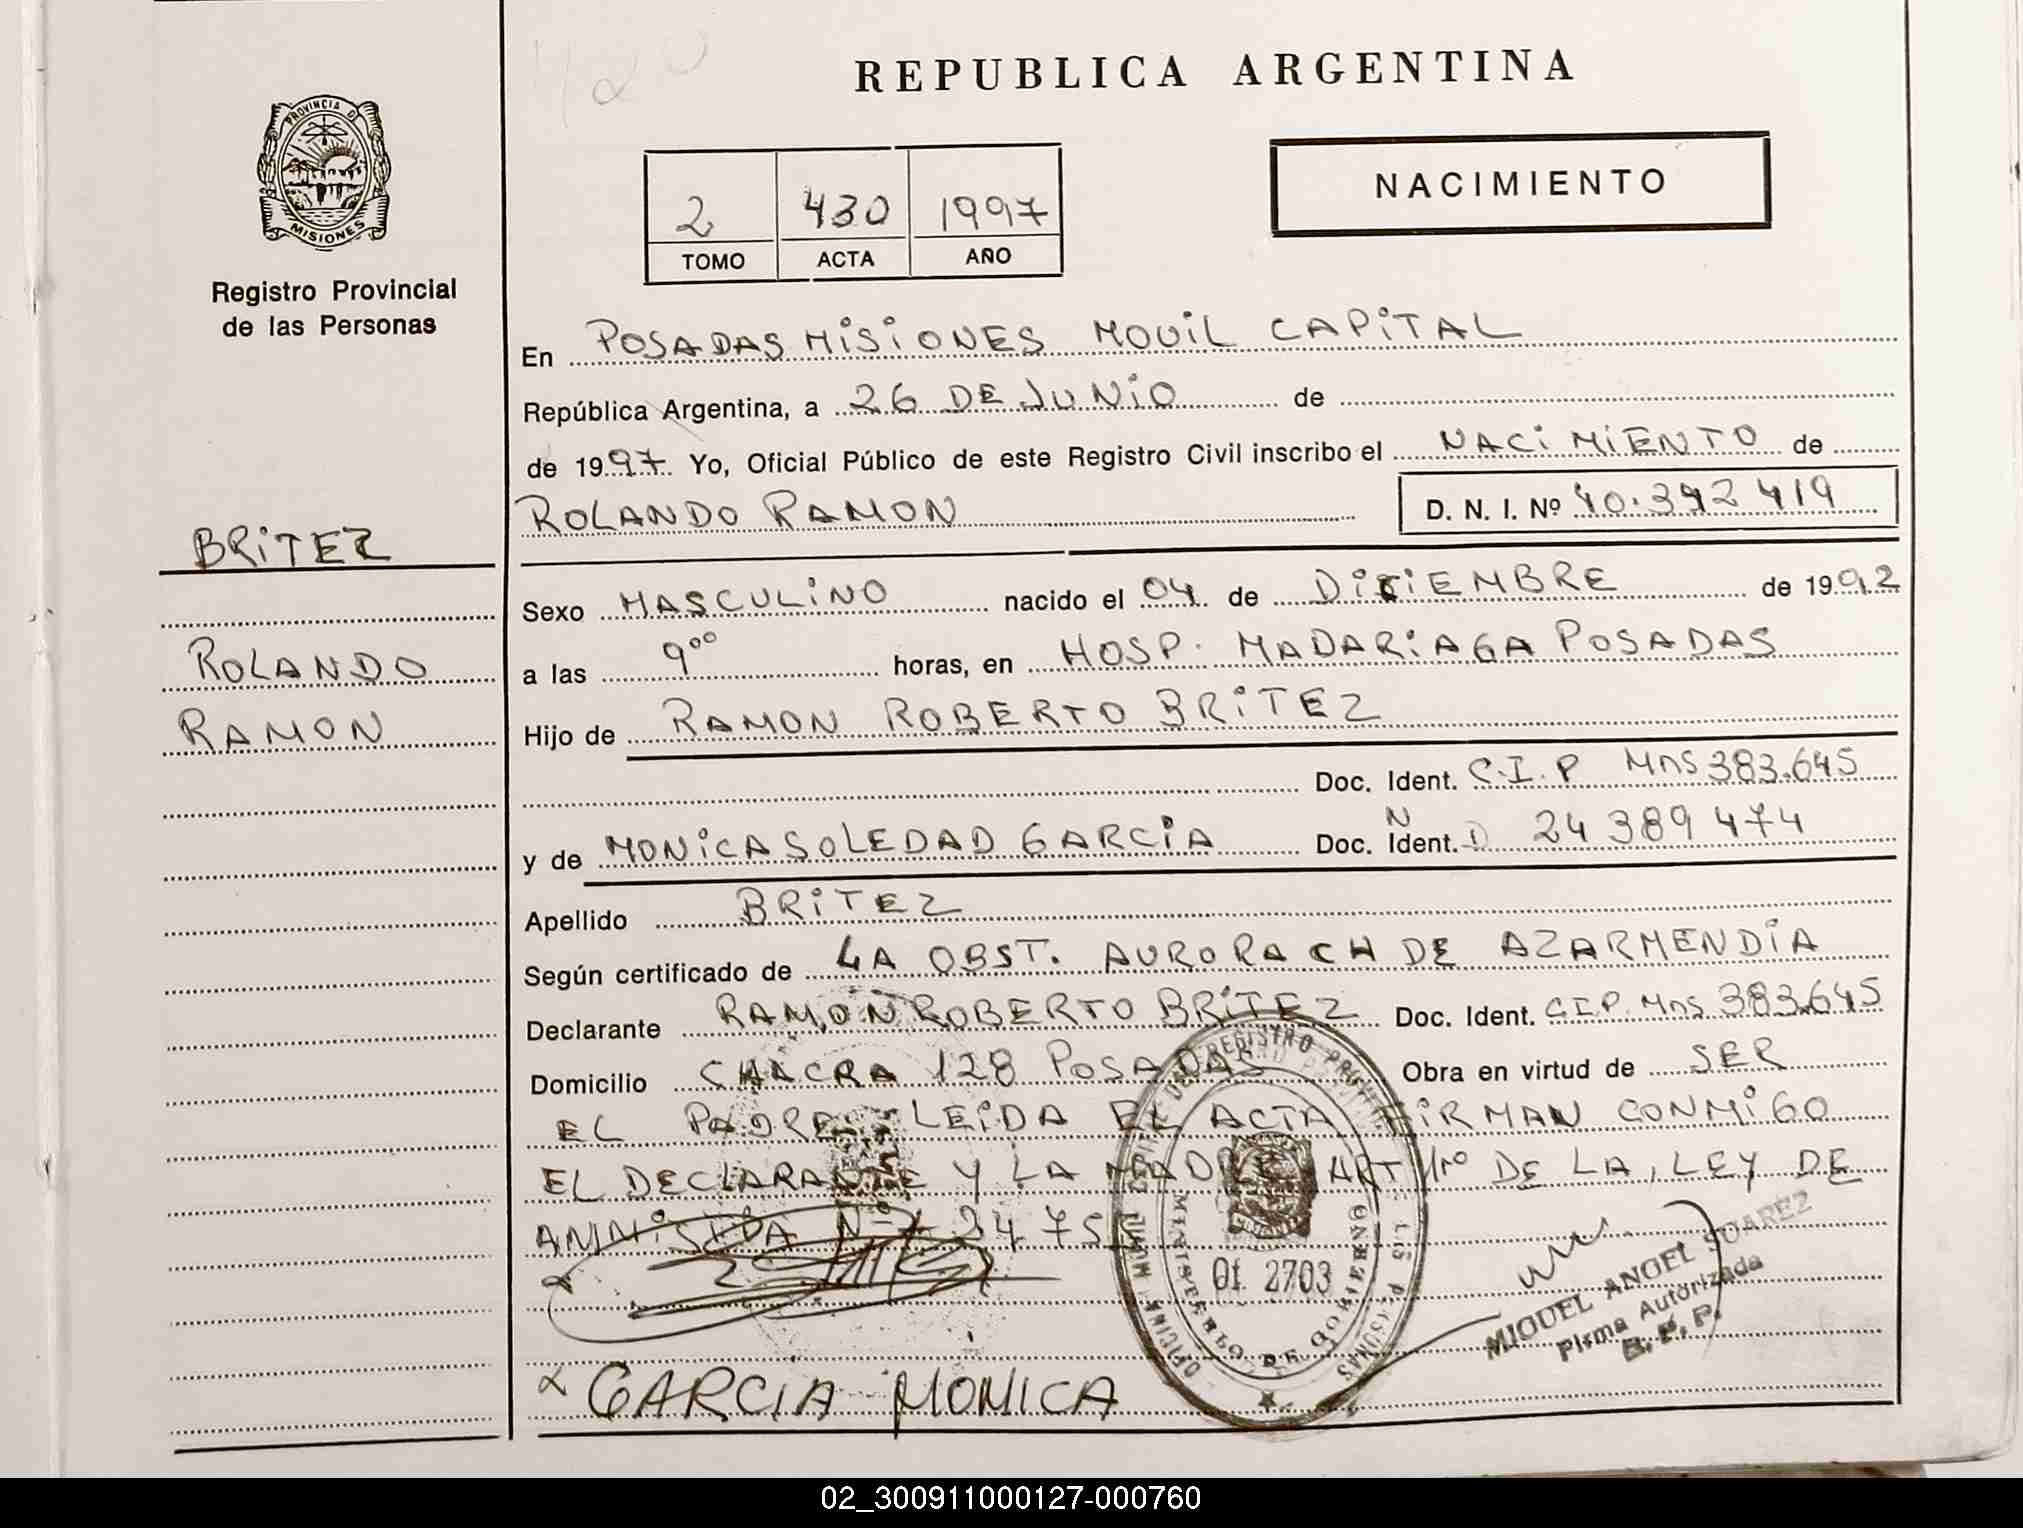 REPUBLICA ARGENTINA
PROVINCIA DE
MISIONES
Registro Provincial
de las Personas
2 430 1997
TOMO ACTA AÑO
NACIMIENTO
En POSADAS MISIONES MOVIL CAPITAL
República Argentina, a 26 DE JUNIO de
de 1997 Yo, Oficial Público de este Registro Civil inscribo el NACIMIENTO de
ROLANDO RAMON D. N. I. Nº 40.392 419
BRITEZ
ROLANDO
RAMON
Sexo MASCULINO nacido el 04 de DICIEMBRE de 1992
a las 9⁰⁰ horas, en HOSP. MADARIAGA POSADAS
Hijo de RAMON ROBERTO BRITEZ
Doc. Ident. C.I.P Mns 383.645
y de MONICA SOLEDAD GARCIA Doc. Ident. D N 24 389 474
Apellido BRITEZ
Según certificado de LA OBST. AURORA CH DE AZARMENDIA
Declarante RAMON ROBERTO BRITEZ Doc. Ident. C.I.P. Mns 383.645
Domicilio CHACRA 128 POSADAS Obra en virtud de SER
EL PADRE LEIDA EL ACTA FIRMAN CONMIGO
EL DECLARANTE Y LA MADRE ART 1º DE LA LEY DE
AMNISTIA Nº 3475
01 2703
MIGUEL ANGEL SUAREZ
Firma Autorizada
R. P. P.
GARCIA MONICA
02_300911000127-000760